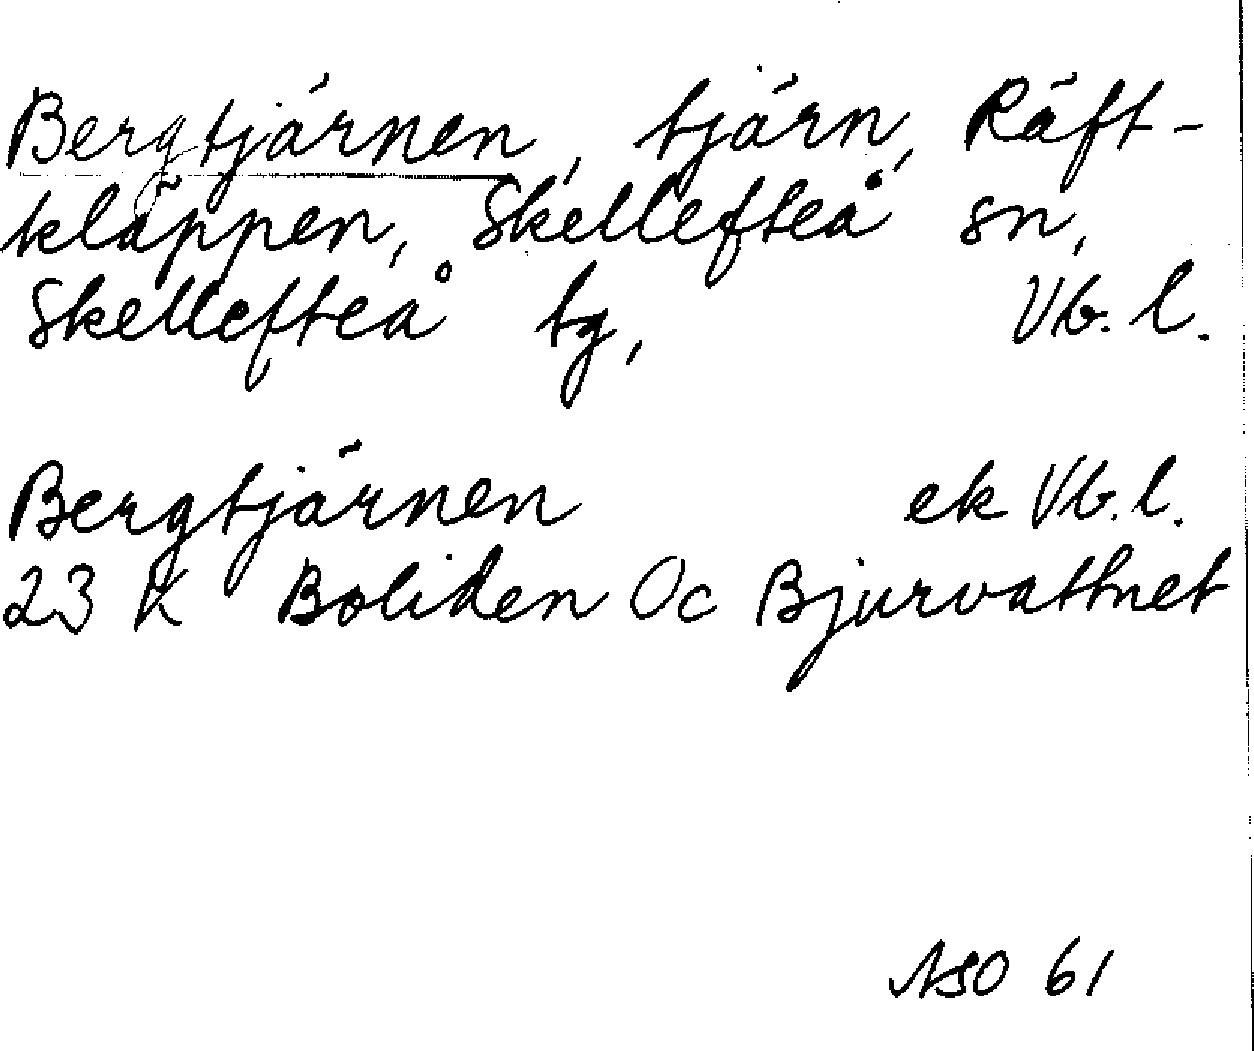 Bergtjärnen, tjärn, Räft-
kläppen, Skellefteå sn,
Skellefteå tg, Vb. l.
Bergtjärnen ek Vb. l.
23 K Boliden Oc Bjurvattnet
ASO 61